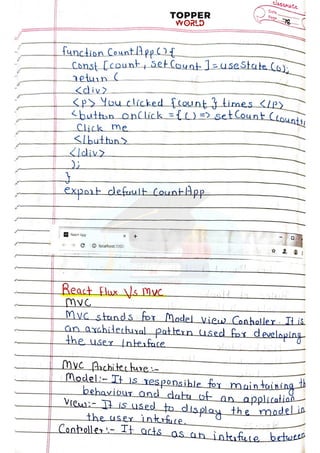 classmate
Date
Page 76
TOPPER
WORLD
function CountApp(){
Const [count, setCount] = useState(0);
return (
<div>
<p> You clicked {count} times </p>
<button onClick = {() => setCount (count+1
Click me
</button>
</div>
);
}
export default CountApp
React App
localhost
React flux V/s MVC
MVC
MVC stands for Model View Controller. It is
an architectural pattern used for developing
the user Interface
MVC Architecture:-
Model:- It is responsible for maintaining th
behaviour and data of an application
View:- It is used to display the model in
the user interface.
Controller:- It acts as an interface between